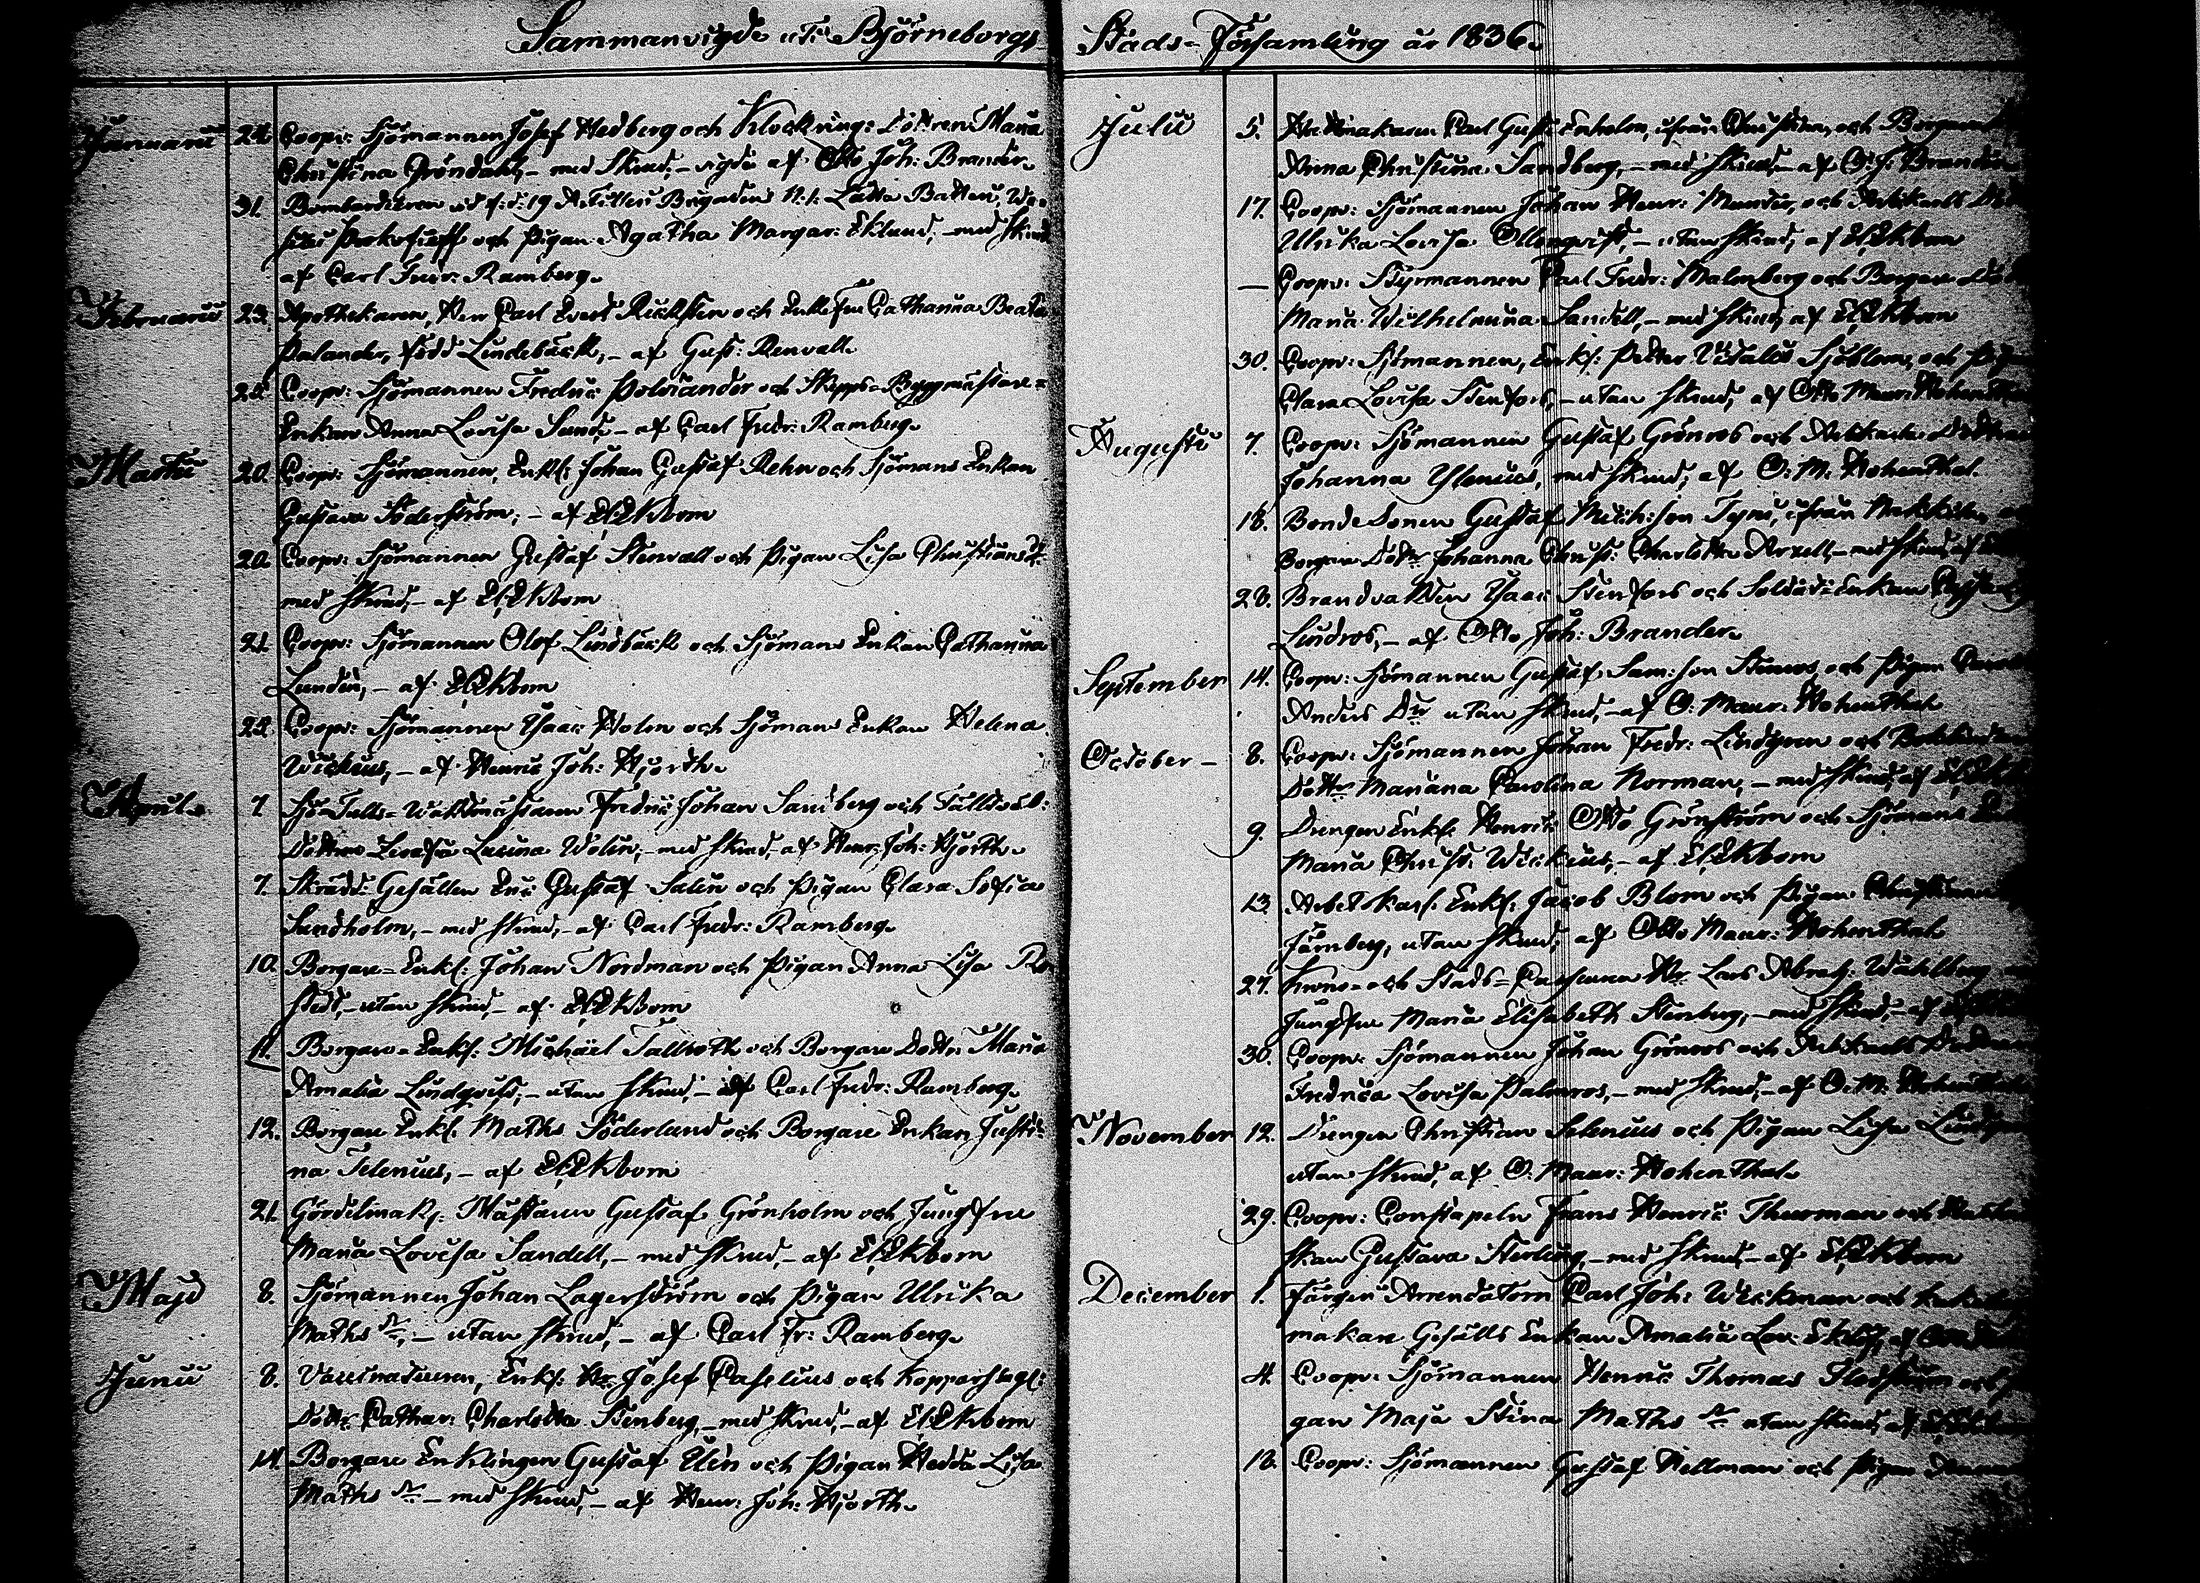 Sammanvigde uti Björneborgs Stads-Församling år 1836.
Januarii 24. Coopv: Sjömannen Josef Hedberg och Klockrings: Dottren Maria
Christina Gröndahl, - med Skrud, - vigde af Otto Joh: Brander.
31. Bombardieren vid f: d: 19 Artilleri Brigadens N: 1. Lätta Batteri, Wa=
silei Prokofieff och Pigan Agatha Margar: Eklund, - med Skrud
af Carl Fredr: Ramberg.
Februarii 23. Apothekaren, Herr Carl Evert Rickstén och Enkefru Catharina Beata
Palander, född Lindebäck, - af Gust: Renvall.
25. Coopv: Sjömannen Fredric Polviander och Skepps-Byggmästare=
Enkan Anna Lovisa Sund, - af Carl Fredr: Ramberg.
Martii 20. Coopv: Sjömannen, Enkl: Johan Gustaf Rehn och Sjömans Enkan
Gustava Söderström; - af El: Ekbom
20. Coopv: Sjömannen Gustaf Stenvall och Pigan Lisa Christians Dr
med Skrud, - af El: Ekbom
21 Coopv: Sjömannen Olof Lindbäck och Sjömans Enkan Catharina
Lundén, - af El: Ekbom
25. Coopv: Sjömannen Isaac Holm och Sjömans Enkan Helena
Wickius, - af Henric Joh: Hjorth.
April. 7 Sjö-Tulls-Waktmästaren Fredric Johan Sandberg och Tullvakt:
Dottren Lovisa Lucina Wolin, - med Skrud, - af Henr: Joh: Hjorth.
7. Skrädd: Gesällen Eric Gustaf Salin och Pigan Clara Sofia
Sundholm, - med Skrud, - af Carl Fredr: Ramberg.
10. Borgare-Enkl: Johan Nordman och Pigan Anna Lisa Ro
stedt, - utan Skrud, - af El: Ekbom
11. Borgare-Enkl: Michaël Tallroth och Borgare Dottr: Maria
Amalia Lindqvist, - utan Skrud, - af Carl Fredr: Ramberg.
12. Borgare Enkl. Maths Söderlund och Borgare Enkan Justi=
na Selenius, - af El: Ekbom
21. Gördelmak: Mästaren Gustaf Grönholm och Jungfru
Maria Lovisa Sandell, - med Skrud, - af El: Ekbom
Maji 8. Sjömannen Johan Lagerström och Pigan Ulrika
Maths Dr, - utan Skrud, - af Carl Fr: Ramberg.
Junii 8. Enkl: Hr Josef Caselius och Kopparslag:
Dottr: Cathar: Charlotta Stenberg, - med Skrud, - af El: Ekbom
14. Borgare Enklingen Gustaf Ulin och Pigan Hedda Lisa
Maths Dr - med Skrud, - af Henr: Joh: Hjorth.
Julii 5. Hattmakaren Carl Gust: Enholm, ifrån Christin, och Borgare
Anna Christina Sandberg, - med Skrud, - af O: J: Brander
17. Coopv: Sjömannen Johan Henr: Munter, och Arbtkarls
Ulrika Lovisa Ollonqvist, - utan Skrud, af El: Ekbom
— Coopv: Styrmannen Carl Fredr: Malmberg och Borgare
Maria Wilhelmina Sandell, - med Skrud, af El: Ekbom
30. Coopv: Sjömannen, Enkl: Petter Vidalis Sjöblom, och Pigan
Clara Lovisa Stenfors, - utan Skrud, af Otto Maur: Hohenthal
Augusti 7. Coopv: Sjömannen Gustaf Grönros och Arbtkarls Dottren
Johanna Ylenius, med Skrud, af O: M: Hohenthal.
18. Bonde Sonen Gustaf Mich:son Tyni, ifrån Nakkila,
Borgare Dottr: Johanna Christ: Charlotta Arzell, - med Skrud, af
28. Brandvakten Isaac Stenfors och Soldats Enkan
Lindros, - af Otto Joh: Brander.
September 14. Coopv: Sjömannen Gustaf Sam:son Stenros, och Pigan
Anders Dr utan Skrud, - af O: Maur: Hohenthal
October - 8. Coopv: Sjömannen Johan Fredr: Lindgren och
Dottr: Mariana Carolina Norman, - med Skrud, af El: Ekbom
9. Drengen Enkl: Henric Otto Grönström och Sjömans
Maria Christ: Wickius, - af El: Ekbom
13. Arbetskarl. Enkl: Jacob Blom och Pigan Christina
Järnberg, utan Skrud, af Otto Maur: Hohenthal
27. Krono- och Stads-Cassören Hr: Lars Abrah: Wahlberg
Jungfru Maria Elisabeth Stenberg, - med Skrud, - af
30. Coopv: Sjömannen Johan Grönros och Arbtkarls Dottren
Fredrica Lovisa Palmros, - med Skrud, - af O: M: Hohenthal
November 12. Drengen Christian Selenius och Pigan Lisa
utan Skrud, af O: Maur: Hohenthal.
29. Coopv: Constapeln Frans Henric Thurman och
skan Gustava Sterling, - med Skrud, - af El: Ekbom
December 1. Färgeri Arrendatorn Carl Joh: Wickman och
makare Gesälls Enkan Amalia Lov: Eklöf, af
4. Coopv: Sjömannen Henric Thomas Flodström och Pi
gan Maja Stina Maths Dr utan Skrud, af El: Ekbom
18. Coopv: Sjömannen Gustaf Hellman och Pigan